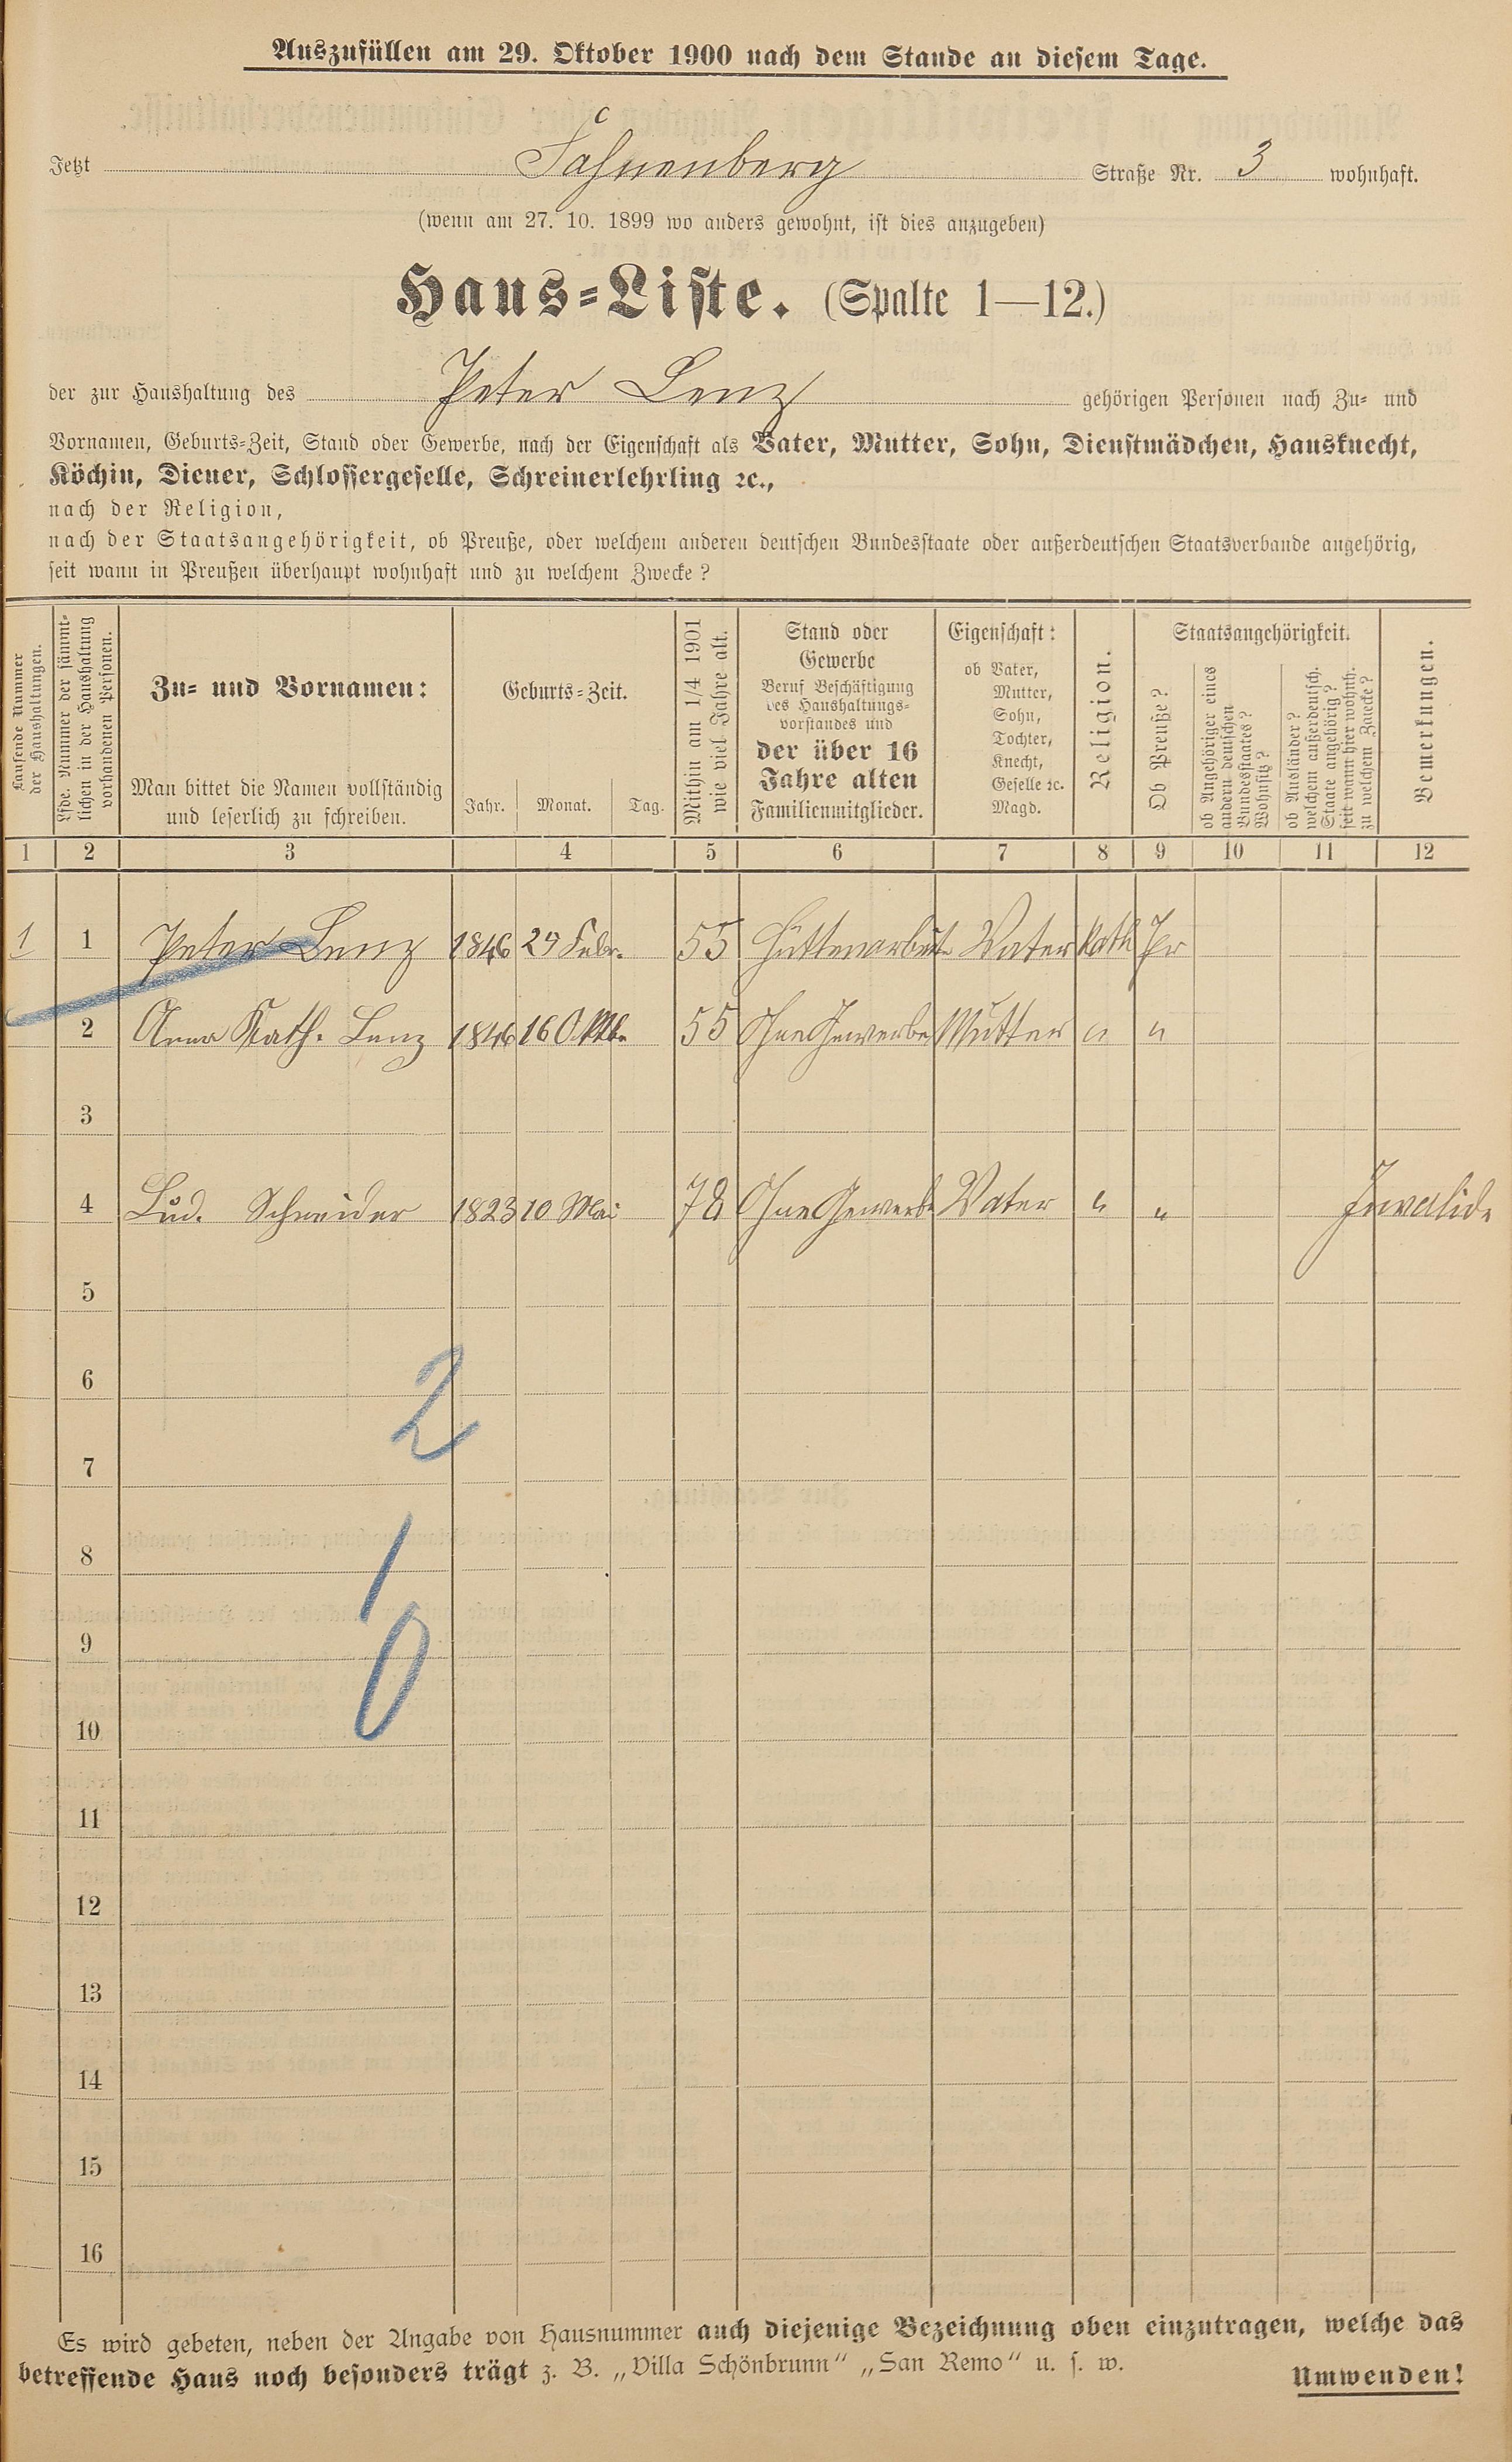 Auszufüllen am 29. Oktober 1900 nach dem Stande an diesem Tage.
Jetzt Fahnenberg Straße Nr. 3 wohnhaft.
(wenn am 27. 10. 1899 wo anders gewohnt, ist dies anzugeben)
Haus-Liste. (Spalte 1—12.)
der zur Haushaltung des Peter Lenz gehörigen Personen nach Zu- und
Vornamen, Geburts-Zeit, Stand oder Gewerbe, nach der Eigenschaft als Vater, Mutter, Sohn, Dienstmädchen, Hausknecht,
Köchin, Diener, Schlossergeselle, Schreinerlehrling ꝛc.,
nach der Religion,
nach der Staatsangehörigkeit, ob Preuße, oder welchem anderen deutschen Bundesstaate oder außerdeutschen Staatsverbande angehörig,
seit wann in Preußen überhaupt wohnhaft und zu welchem Zwecke?
Laufende Nummer
der Haushaltungen.
Lfde. Nummer der sämmt-
lichen in der Haushaltung
vorhandenen Personen.
Zu- und Vornamen:
Man bittet die Namen vollständig
und leserlich zu schreiben.
Geburts-Zeit.
Jahr. Monat. Tag.
Mithin am 1/4 1901
wie viel Jahre alt.
Stand oder
Gewerbe
Beruf Beschäftigung
des Haushaltungs-
vorstandes und
der über 16
Jahre alten
Familienmitglieder.
Eigenschaft:
ob Vater,
Mutter,
Sohn,
Tochter,
Knecht,
Geselle ꝛc.
Magd.
Religion.
Staatsangehörigkeit.
Ob Preuße?
ob Angehöriger eines
andern deutschen
Bundesstaates?
Wohnsitz?
ob Ausländer?
welchem außerdeutsch.
Staate angehörig?
seit wann hier wohnh.
zu welchem Zwecke?
Bemerkungen.
1 2 3 4 5 6 7 8 9 10 11 12
1 1 Peter Lenz 1846 29 Febr. 55 Hüttenarbeit. Vater Kath Pr
2 Anna Kath. Lenz 1846 16 Oktbr 55 Ohne Gewerbe Mutter " "
3
4 Lud. Schneider 1823 10 Mai 78 Ohne Gewerbe Vater " " Invalide
5
6
2
7
8
1
9
0
10
11
12
13
14
15
16
Es wird gebeten, neben der Angabe von Hausnummer auch diejenige Bezeichnung oben einzutragen, welche das
betreffende Haus noch besonders trägt z. B. „Villa Schönbrunn“ „San Remo“ u. s. w.
Umwenden!